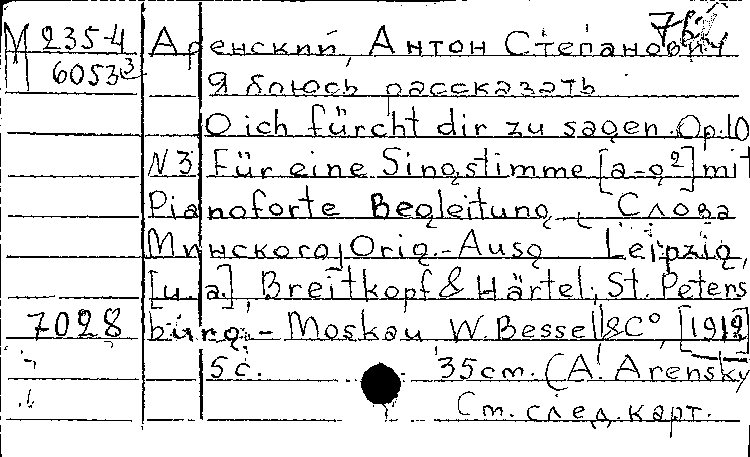 М 235-4
6053³
Аренский, Антон Степанович
Я боюсь рассказать
O ich fürcht dir zu sagen. Op. 10
N 3 Für eine Singstimme [a-g²] mit
Pianoforte Begleitung. Слова
Минского) Orig.-Ausg Leipzig,
[u. a.], Breitkopf & Härtel; St. Peters
7028 burg.- Moskau, W. Bessel & C°, [1912]
5 с. 35 cm. (A. Arensky
См. след. карт.